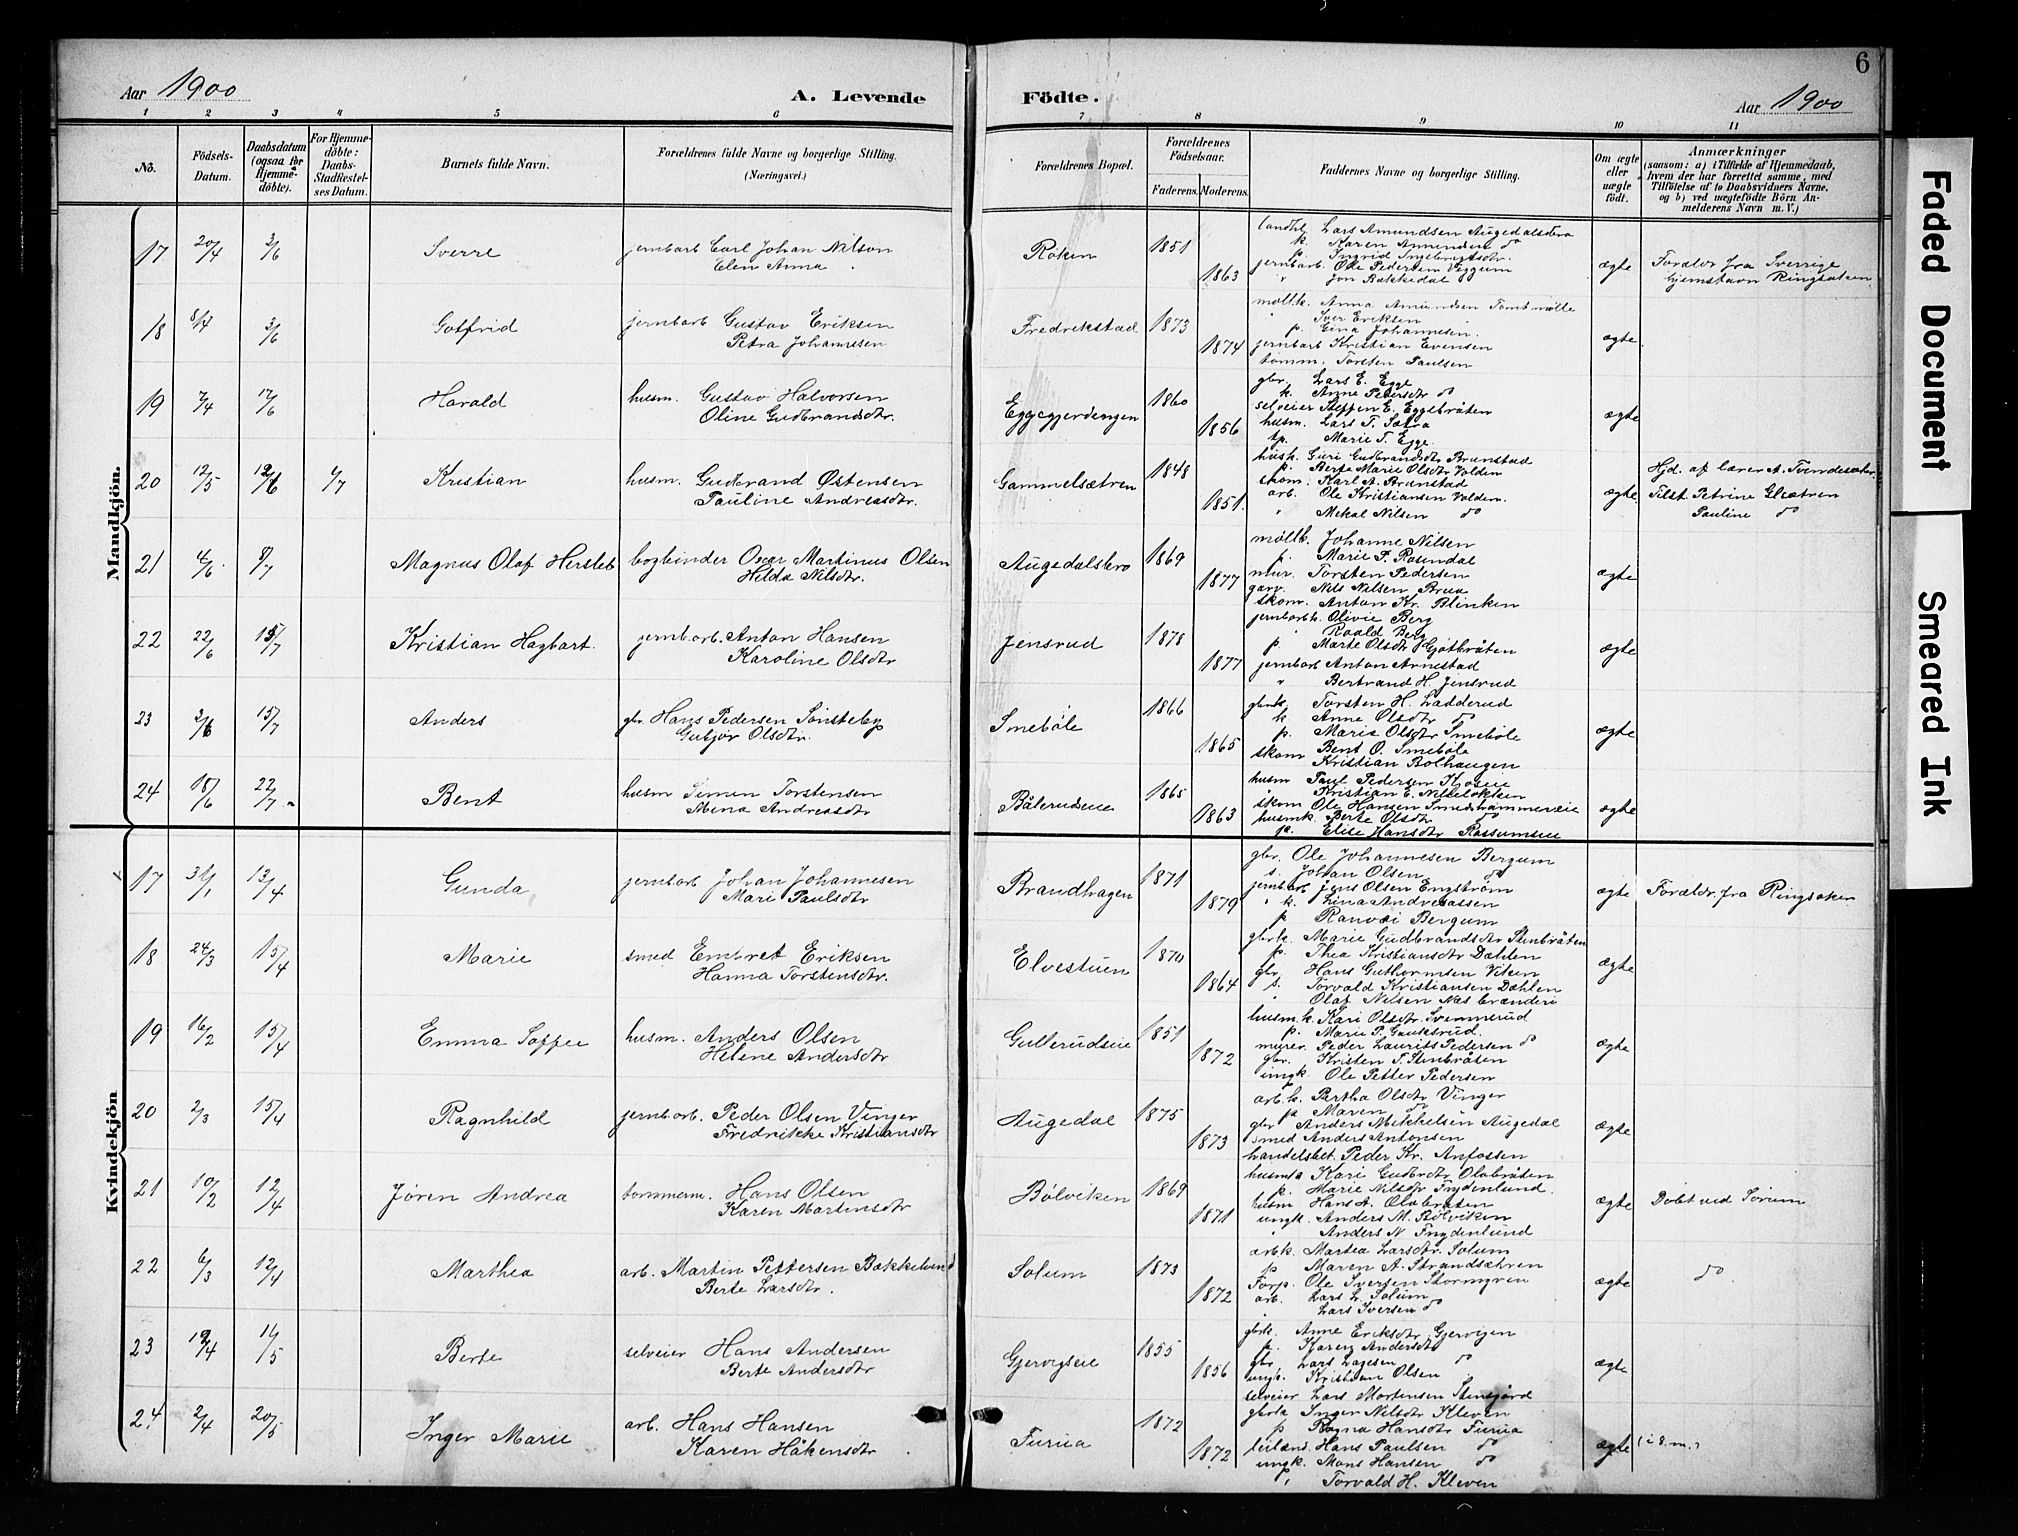 6
Aar 1900
A. Levende
Födte.
Aar 1900
1 2 3 4 5 6 7 8 9 10 11
No.
Födsels-Datum.
Daabsdatum (ogsaa for Hjemmedöbte).
For Hjemmedöbte: Daabs-Stadfæstelses Datum.
Barnets fulde Navn.
Forældrenes fulde Navne og borgerlige Stilling.
(Næringsvei.)
Forældrenes Bopæl.
Forældrenes Födselsaar.
Faderens. Moderens.
Faddernes Navne og borgerlige Stilling.
Om ægte eller uægte födt.
Anmærkninger
(saasom: a) i Tilfælde af Hjemmedaab,
hvem der har forrettet samme, med
Tilföielse af to Daabsvidners Navne.
og b) ved uægtefödte Börn Anmelderens Navn m. V.)
Mandkjön.
17 20/4 3/6 Sverre jernbarb Carl Johan Nilson
Elen Anna
Røken 1851 1863
landhl. Lars Amundsen Augedalsbro
k. Karen Amundsen do
p. Ingrid Ingebregtsdr.
jernbarb. Ole Pedersen Viggum
" Jon Bakkedal do
ægte Forældr fra Sverrige
hjemstavn Ringsaken
18 8/4 3/6 Gotfrid jernbarb Gustav Eriksen
Petra Johannesen
Fredrikstad 1873 1874
møllk. Anna Amundsen Tomtmølle
" Iver Eriksen
p. Gina Johannesen.
jernbarb Kristian Evensen
tømm. Torsten Paulsen
ægte
19 7/4 17/6 Harald husm. Gustav Halvorsen
Oline Gudbrandsdtr.
Eggegjerdengen 1860 1856
gbr. Lars E. Egge
k. Anne Pedersdtr do
selveier Steffen E. Eggebråten
husm. Lars T. Sætra
tp. Marie T. Egge.
ægte
20 12/5 Kristian husm. Gudbrand Østensen
Pauline Andreasdtr.
Gammelsætren 1848 1851.
husk. Guri Gudbrandsdtr Brunstad
p. Berte Marie Olsdtr Volden
skom. Karl A. Brunstad
arb. Ole Kristiansen Volden.
" Mekal Nilsen do
ægte. Hjd. af lærer A. Tvendesæter
Tilst. Petrine Glsætren
Pauline do
21 4/6 8/7 Magnus Olaf Hersleb bogbinder Oscar Martinus Olsen
Hilda Nilsdtr.
Augedalsbro 1869 1877
møllk. Johanne Nilsen
p. Marie P. Rosendal
mur. Torsten Pedersen
garv. Nils Nilsen Brua
skom. Anton Kr. Blinken
ægte
22 22/6 15/7 Kristian Hagbart. jernb.arb. Anton Hansen
Karoline Olsdtr
Jensrud 1878 1877
jernbarb. Olivie Berg
" Roald Berg
p. Marte Olsdtr Gjøtbråten
jernbarb Anton Arnestad
" Bertrand H. Jensrud
ægte
23 15/7 Anders gbr. Hans Pedersen Sønsteby
Gubjør Olsdtr.
Smebøle 1866 1865
gbrk. Torsten H. Ladderud
k. Anne Olsdtr do
p. Marie Olsdtr Smebøle
skom Bent O. Smebøle
Kristian Bolhaugen
ægte
24 18/6 22/7 Bent husm Simen Torstensen
Mina Andreasdtr
Bålerudseie 1865 1863
husm Paul Pedersen Kjoseie
" Kristian E. Nilseløkken
skom Ole Hansen Smedshammereie
husmk. Berte Olsdtr do
p. Elise Hansdtr Rossumseie
ægte
Kvindekjön
17 31/1 13/4 Gunda jernbarb Johan Johannesen
Mari Paulsdtr
Brandhagen 1871 1879
gbr. Ole Johannesen Bergum
s. Johan Olsen do
jernbarb Jens Olsen Engstrøm
" k. Lina Andreassen
p Ranvei Bergum
ægte Forældr. fra Ringsaker
18 24/3 15/4 Marie smed Embret Eriksen
Hanna Torstensdtr.
Elvestuen 1870 1864
gbrk. Marie Gudbrandsdtr Stenbråten
p. Thea Kristiansdtr Dæhlen
gbr. Hans Guthormsen Viken
s. Torvald Kristiansen Dæhlen
" Olaf Nilsen Næs brænderi
ægte
19 16/2 15/4 Emma Soffie husm. Anders Olsen
Helene Andersdtr
Gullerudseie 1851 1872
husm.k. Kari Olsdtr. Svennerud
p. Marie P. Gauksrud.
murer. Peder Laurits Pedersen do
gbr. Kristen T. Stenbråten
ungk. Ole Petter Pedersen
ægte
20 2/3 15/4 Ragnhild jernb.arb. Peder Olsen Vinger
Fredrikke Kristiansdtr
Augedal 1875 1873
arb.k. Bertha Olsdtr Vinger
p. Maren do
gbr Anders Mikkelsen Augedal
smed Anders Antonsen
handelsbet. Peder Kr. Antossen
ægte
21 10/2 12/4 Jøren Andrea tømmerm. Hans Olsen
Karen Martinsdtr
Bølviken 1869 1871
husmk Kari Gudbrdtr Olabråten
p. Marie Nilsdtr Frydenlund.
husm Hans A. Olabråten
ungk. Anders M. Bølviken
" Anders N Frydenlund
ægte Døbt ved Sørum
22 6/3 12/4 Marthea arb. Martin Pettersen Bakkelvend
Berte Larsdtr.
Solum 1873 1872
arbk. Martea Larsdtr. Solum
p Maren A. Strandsætren
Forp. Ole Iversen Stormyren
arb. Lars L. Solum
" Lars Iversen do
ægte do
23 Berte selveier Hans Andersen
Berte Andersdtr
Gjervigseie 1855 1856
gbrk. Anne Eriksdtr Gjervigen
p. Karen Andersdtr
gbr. Lars Lagesen do
ungk. Kristian Olsen
selveier Lars Mortensen Stensjørd
ægte
24. 2/4 20/5 Inger Marie arb. Hans Hansen
Karen Håkensdtr
Furua 1872 1872
gbrk Inger Nilsdtr Kleven
p Ragna Hansdtr Furua
leilænd. Hans Paulsen do
ungk. Mons Hansen do
p. Torvald H. Kleven
ægte (i S. m.)
Faded Document
Smeared Ink